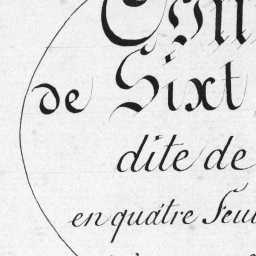 de Sixt
dite de
en quatre Feui